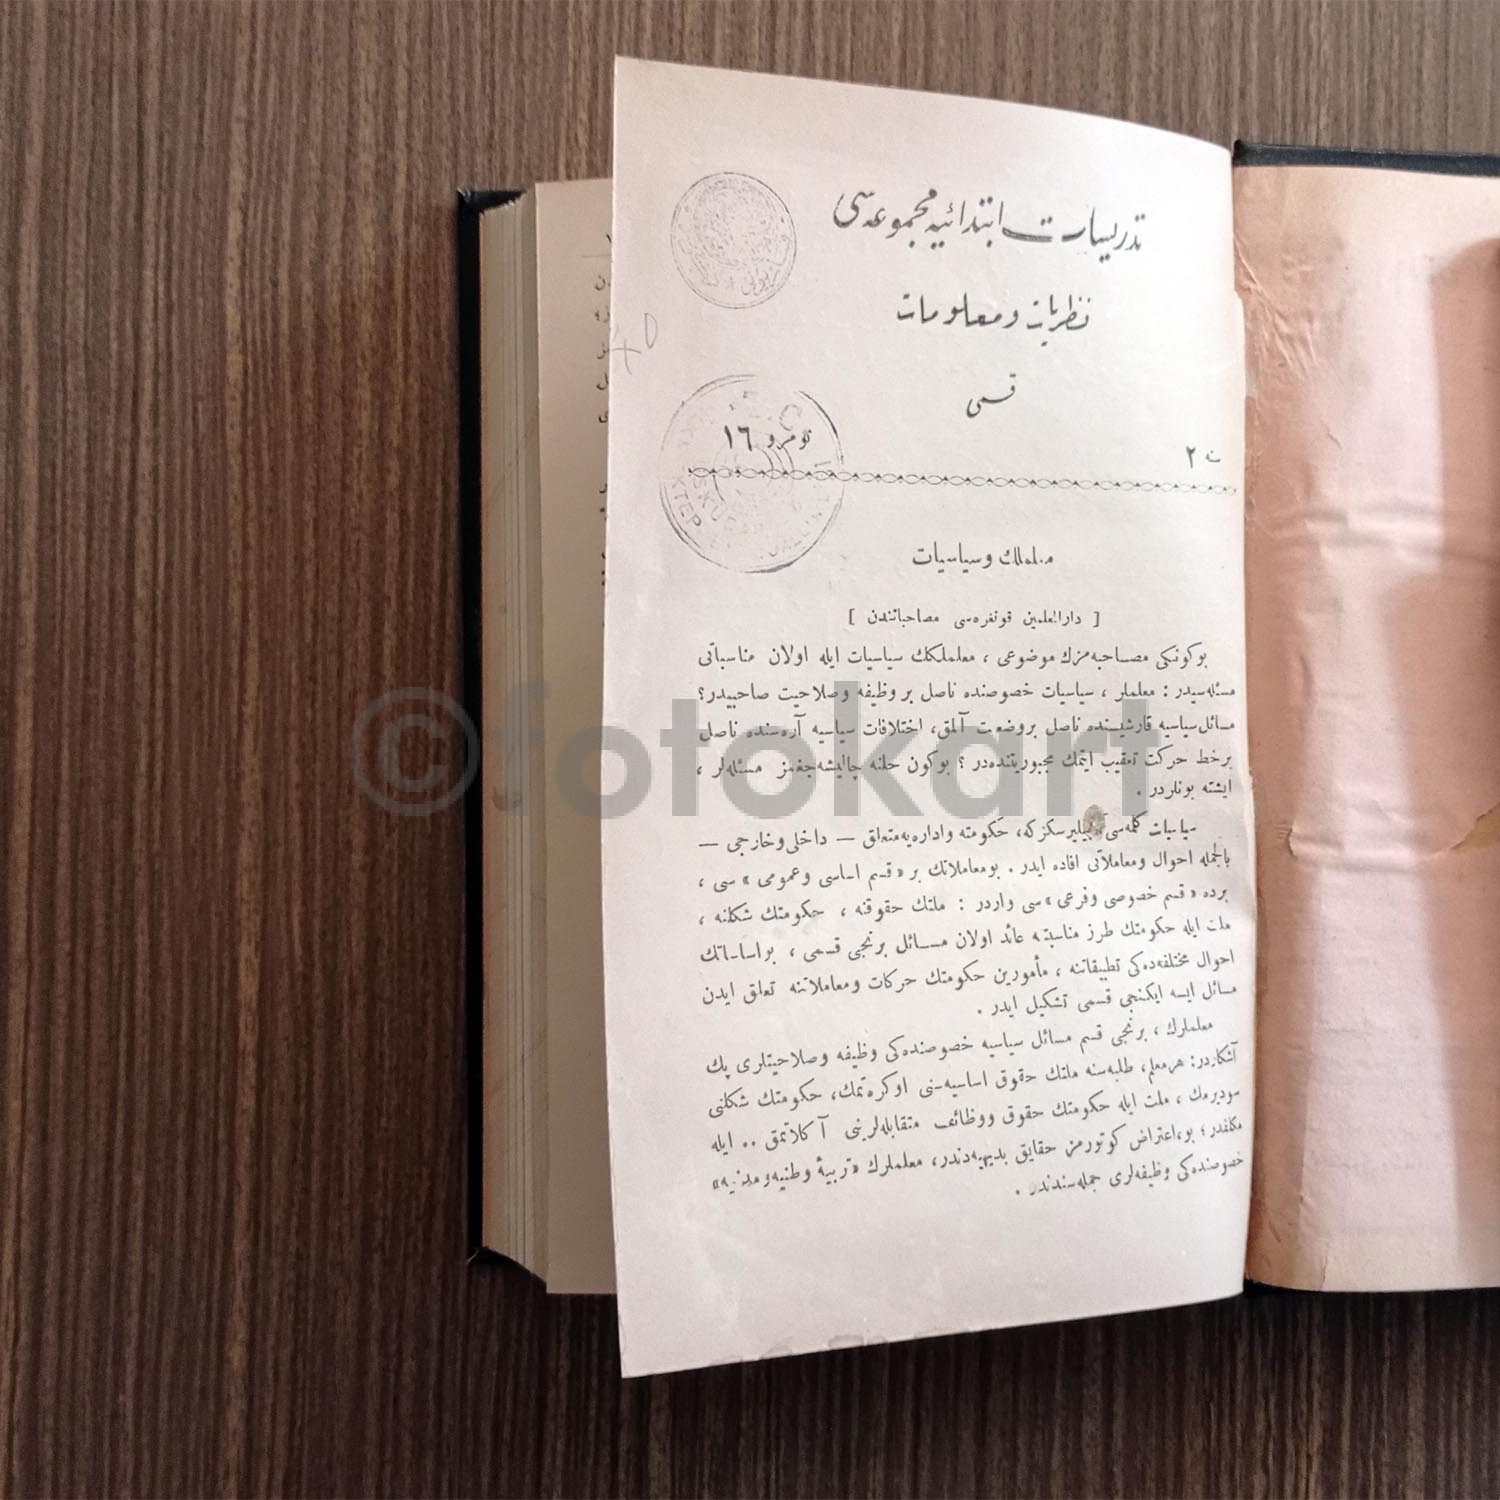 تدريسات ابتدائيه مجموعه‌سی
نظريات و معلومات
قسمی
سنه ٢
نومرو ١٦
معلملك و سياسيات
[ دارالمعلمين قونفره‌سی مصاحباتندن ]
بوكونكی مصاحبه‌مزك موضوعی ، معلملكك سياسيات ايله اولان مناسباتی
مسئله‌سيدر : معلملر ، سياسيات خصوصنده ناصل بر وظيفه و صلاحيت صاحبيدر؟
مسائل سياسيه قارشيسنده ناصل بر وضعيت آلمق، اختلافات سياسيه آره‌سنده ناصل
بر خط حركت تعقيب ايتمك مجبوريتنده‌در ؟ بوكون حلنه چاليشه‌جغمز مسئله‌لر ،
ايشته بونلردر .
سياسيات كلمه‌سی بيليرسكز كه، حكومته و اداره‌يه متعلق — داخلی و خارجی —
بالجمله احوال و معاملاتی افاده ايدر . بو معاملاتك بر «قسم اساسی و عمومی» سی ،
برده «قسم خصوصی و فرعی» سی واردر : ملتك حقوقنه ، حكومتك شكلنه ،
ملت ايله حكومتك طرز مناسبتنه عائد اولان مسائل برنجی قسمی ، بو اساساتك
احوال مختلفه‌ده‌كی تطبيقاتنه ، مأمورين حكومتك حركات و معاملاتنه تعلق ايدن
مسائل ايسه ايكنجی قسمی تشكيل ايدر .
معلملرك ، برنجی قسم مسائل سياسيه خصوصنده‌كی وظيفه و صلاحيتلری پك
آشكاردر: هر معلم، طلبه‌سنه ملتك حقوق اساسيه‌سنی اوكره‌تمك، حكومتك شكلنی
سوديرمك ، ملت ايله حكومتك حقوق و وظائف متقابله‌لرينی آكلاتمق .. ايله
مكلفدر؛ بو، اعتراض كوتورمز حقايق بديهيه‌دندر، معلملرك «تربيهٔ وطنيه و مدنيه»
خصوصنده‌كی وظيفه‌لری جمله‌سندندر .
©fotokart